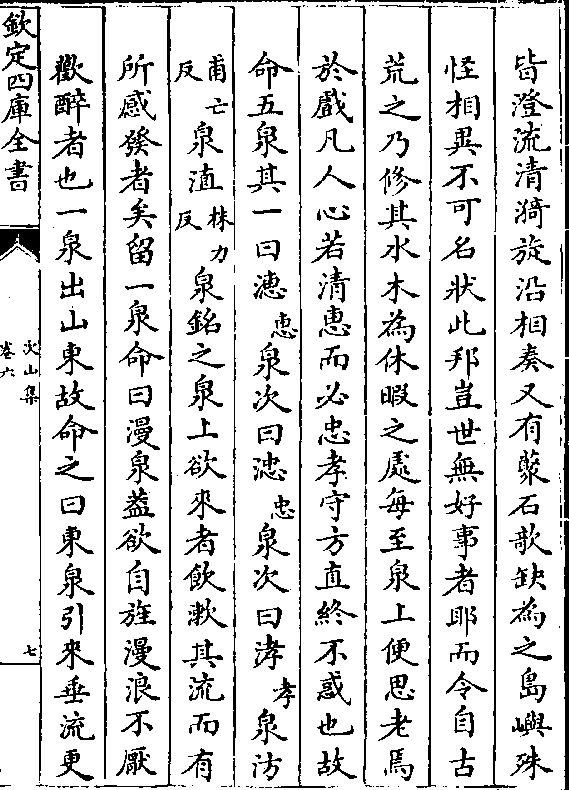 皆澄流清漪旋沿相奏又有藂石欹缺為之島嶼殊
怪相異不可名狀此邦豈世無好事者耶而令自古
荒之乃修其水木為休暇之處每至泉上便思老焉
於戲凡人心若清惠而必忠孝守方直終不惑也故
命五泉其一曰潓惠泉次曰㳘忠泉次曰涍孝泉汸
甫亡反泉淔株力反泉銘之泉上欲來者飲漱其流而有
所感發者矣留一泉命曰漫泉蓋欲自旌漫浪不厭
歡醉者也一泉出山東故命之曰東泉引來垂流更
欽定四庫全書
次山集
卷六
七